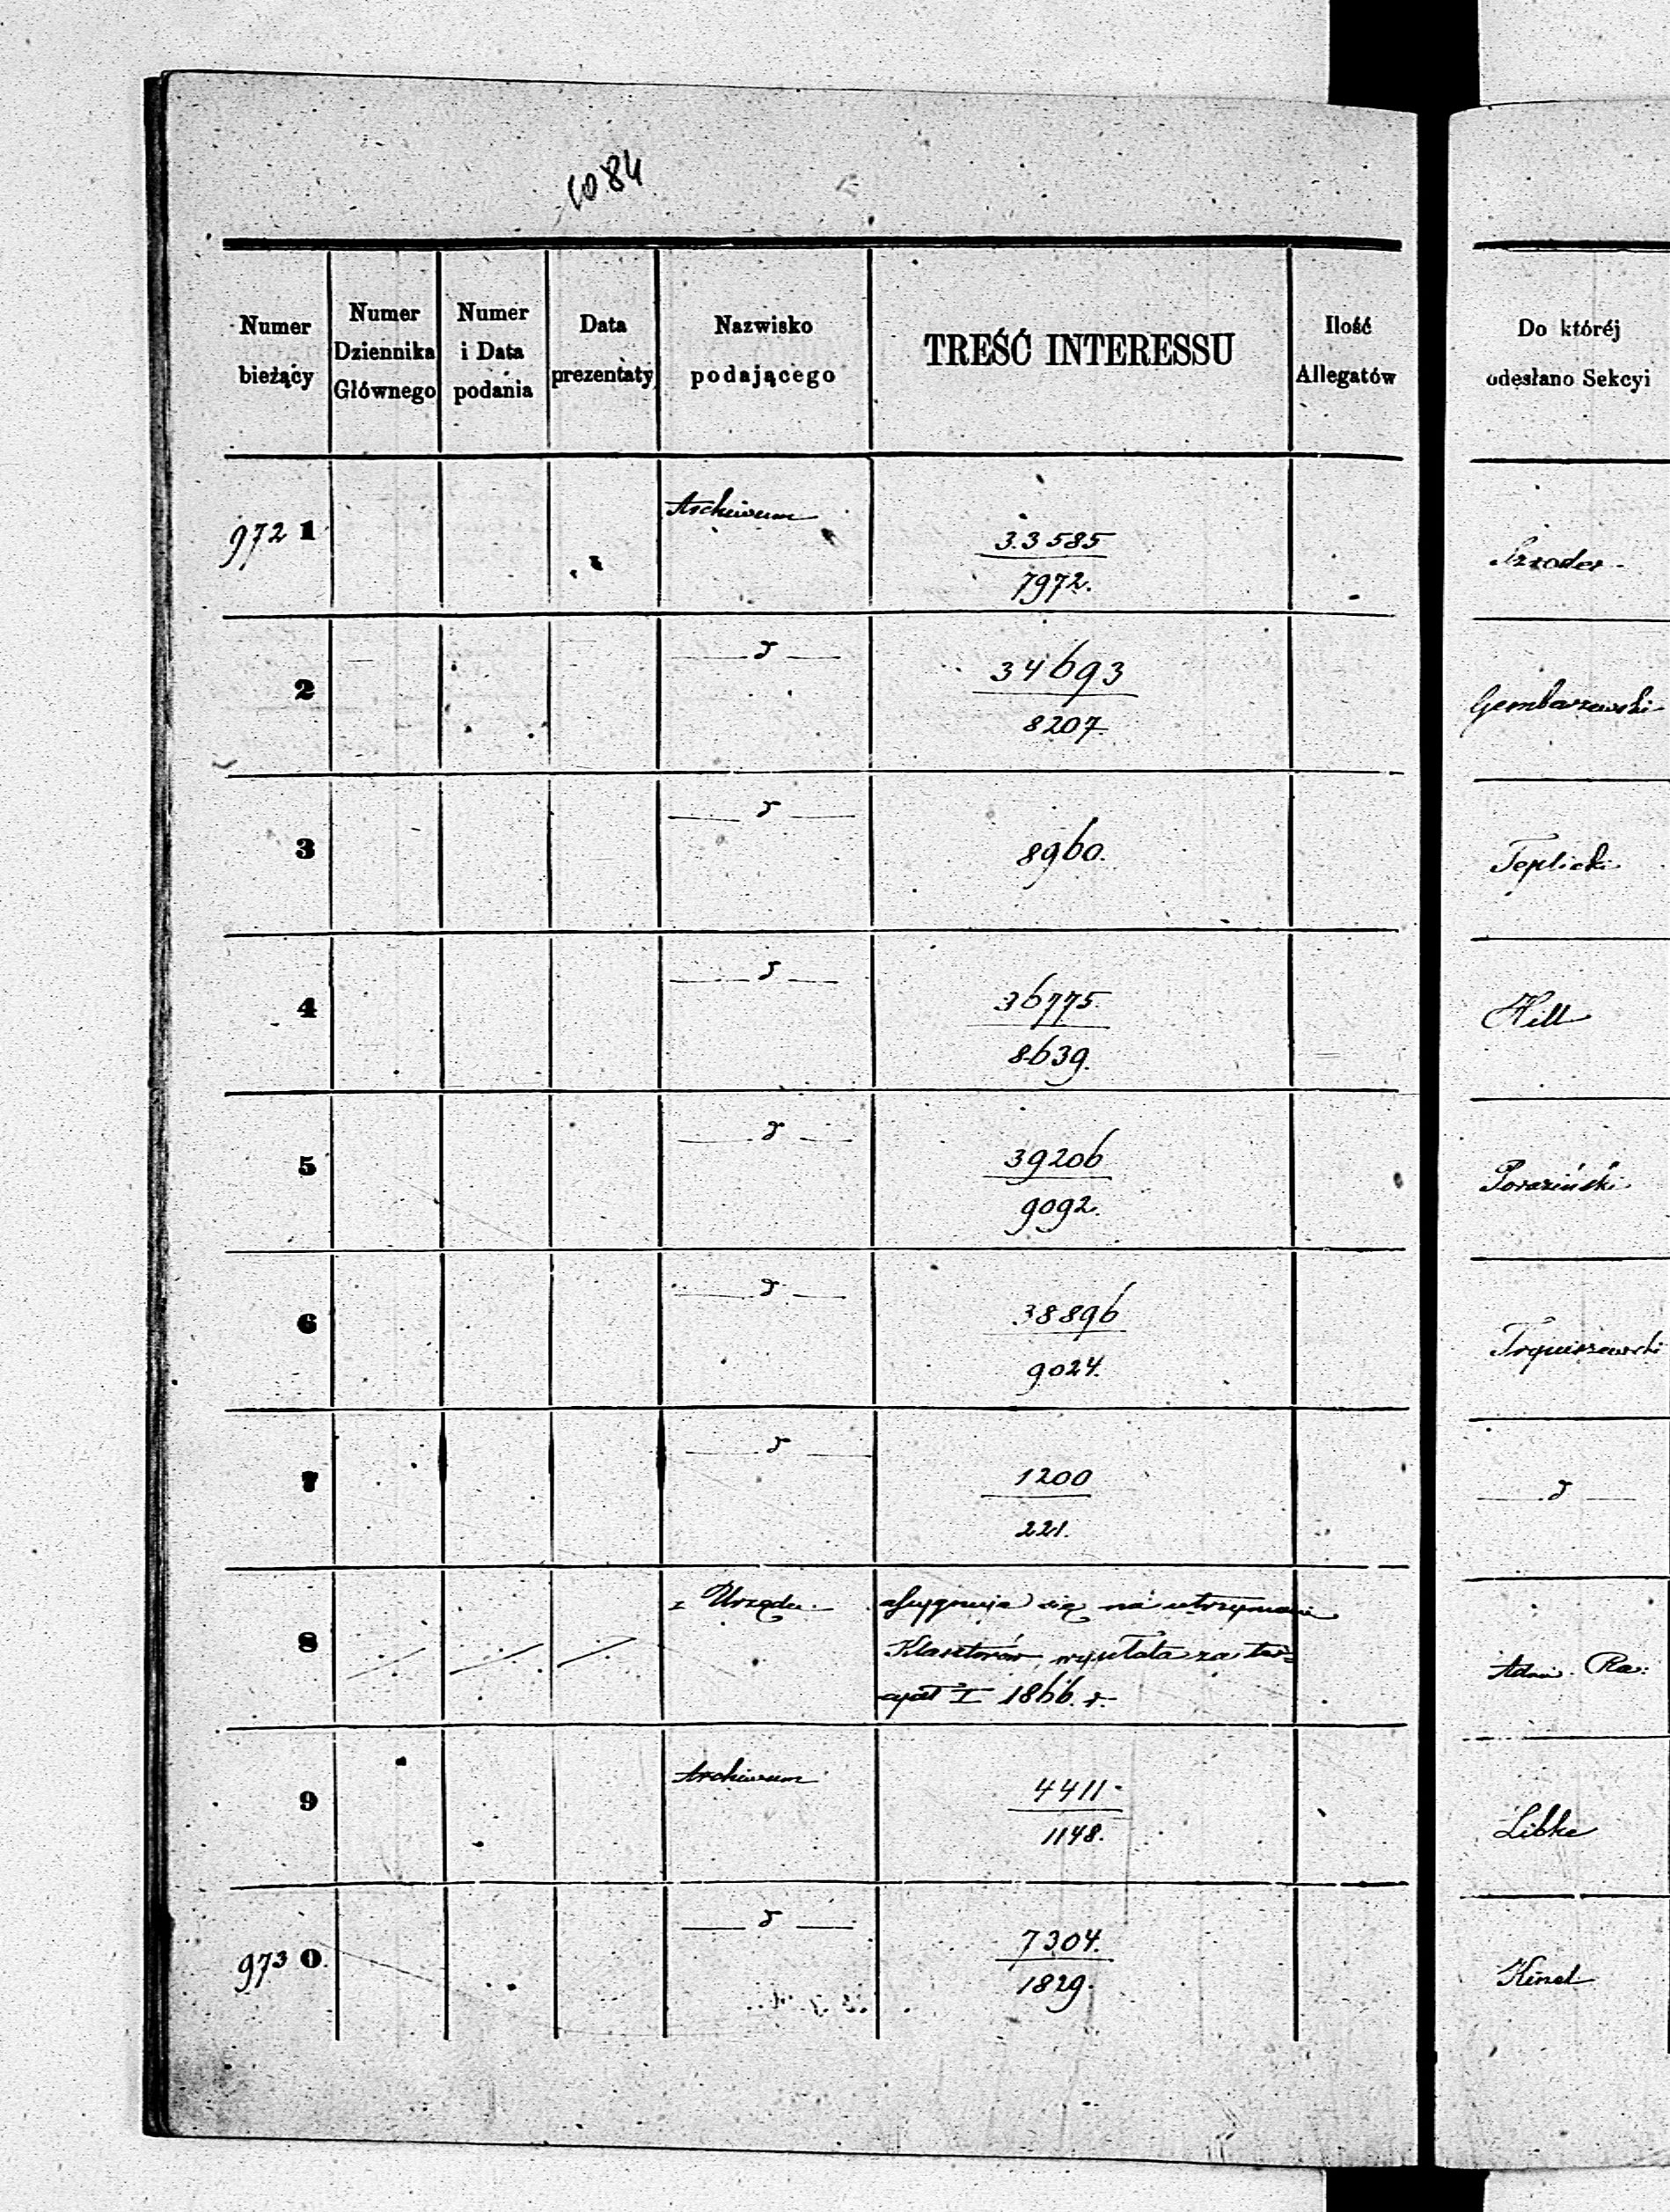 1084
Numer bieżący
Numer Dziennika Głównego
Numer i Data podania
Data prezentaty
Nazwisko podającego
TREŚĆ INTERESSU
Ilość Allegatów
Do któréj odesłano Sekcyi
9721 Archiwum 33585
7972. Szroder
2 d 34693
8207. Gembarzewski
3 d 8960. Teplicki
4 d 36775.
8639. Hill
5 d 39206
9092. Poraziński
6 d 38896
9024.
7 d 1200
221. d
8 z Urzędu. assygnuje się na utrzymanie
Klasztorów, wypłata za ter=
1866. r. Adm. Ra:
9 Archiwum 4411
1148. Libke
9730. d 7304.
1829. Kinel